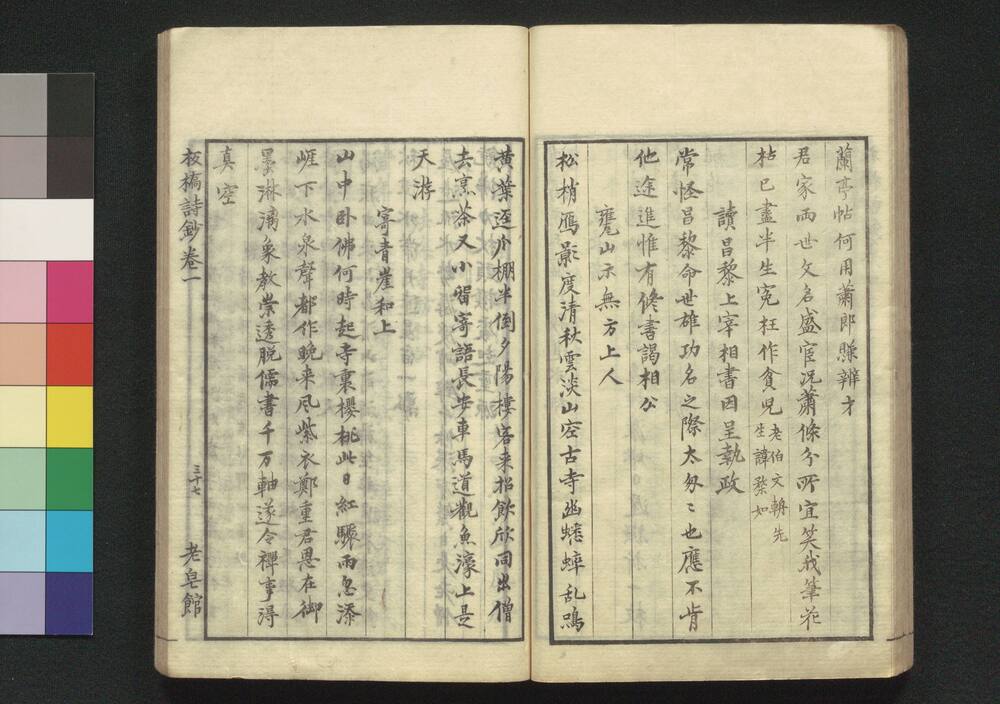 蘭亭帖何用蕭郎賺辨才
君家兩世文名盛宦况蕭條分所宜笑我筆花
枯已盡半生寃枉作貪兒老伯文輈先
生諱棻如
讀昌黎上宰相書因呈執政
常怪昌黎命世雄功名之際太匆〻也應不肯
他途進惟有修書謁相公
甕山示無方上人
松梢鴈影度清秋雲淡山空古寺幽蟋蟀乱鳴
黄葉逕瓜棚半倒夕陽樓客来招飲欣同出僧
去烹茶又小畱寄語長安車馬道觀魚濠上是
天游
寄青崖和上
山中卧佛何時起寺裏櫻桃此日紅驟雨忽添
崕下水泉聲都作晚来风紫衣鄭重君恩在御
墨淋漓象教崇透脱儒書千万軸遂令禪事得
真空
板橋詩鈔卷一
三十七
老皂館